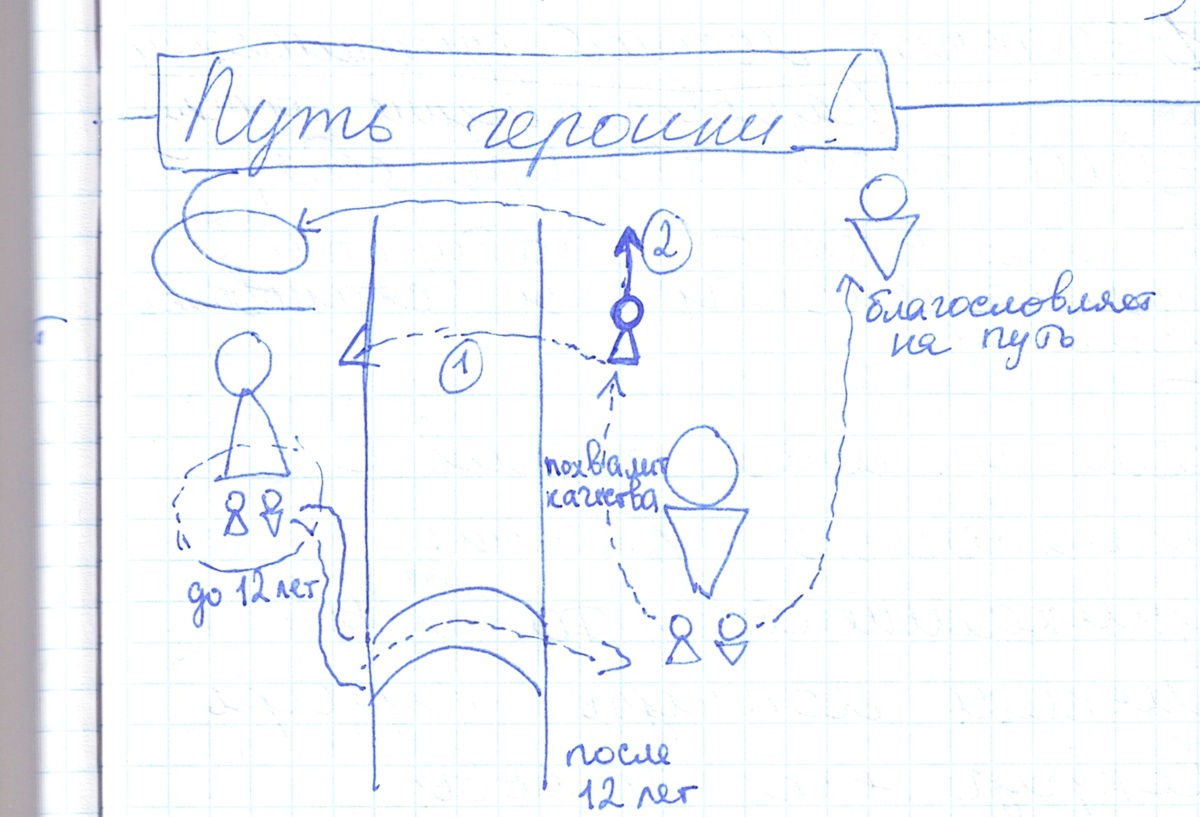 Путь героини!
2
благословляет
на путь
1
похвалит
качества
до 12 лет
после
12 лет